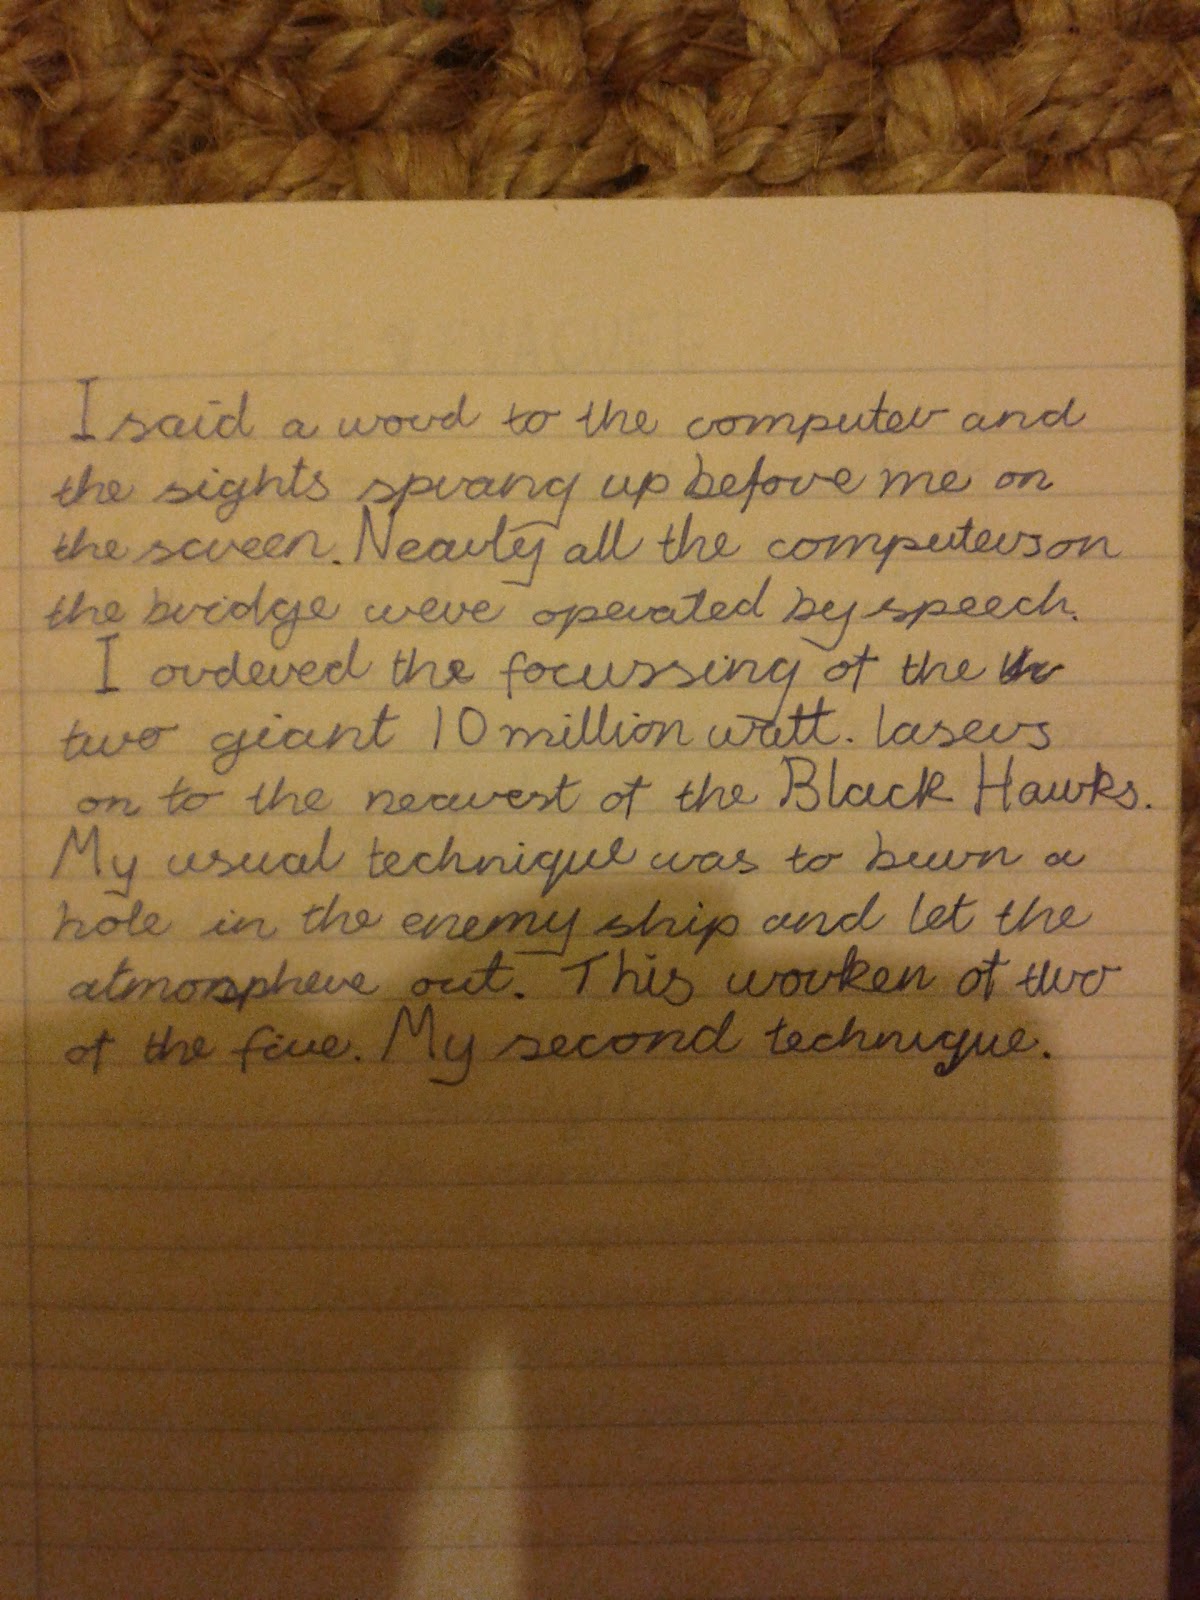 I said a word to the computer and
the sights sprang up before me on
the screen. Nearly all the computers on
the bridge were operated by speech.
I ordered the focussing of the
two giant 10 million watt. lasers
on to the nearest of the Black Hawks.
My usual technique was to burn a
hole in the enemy ship and let the
atmosphere out. This worken of two
of the five. My second technique.